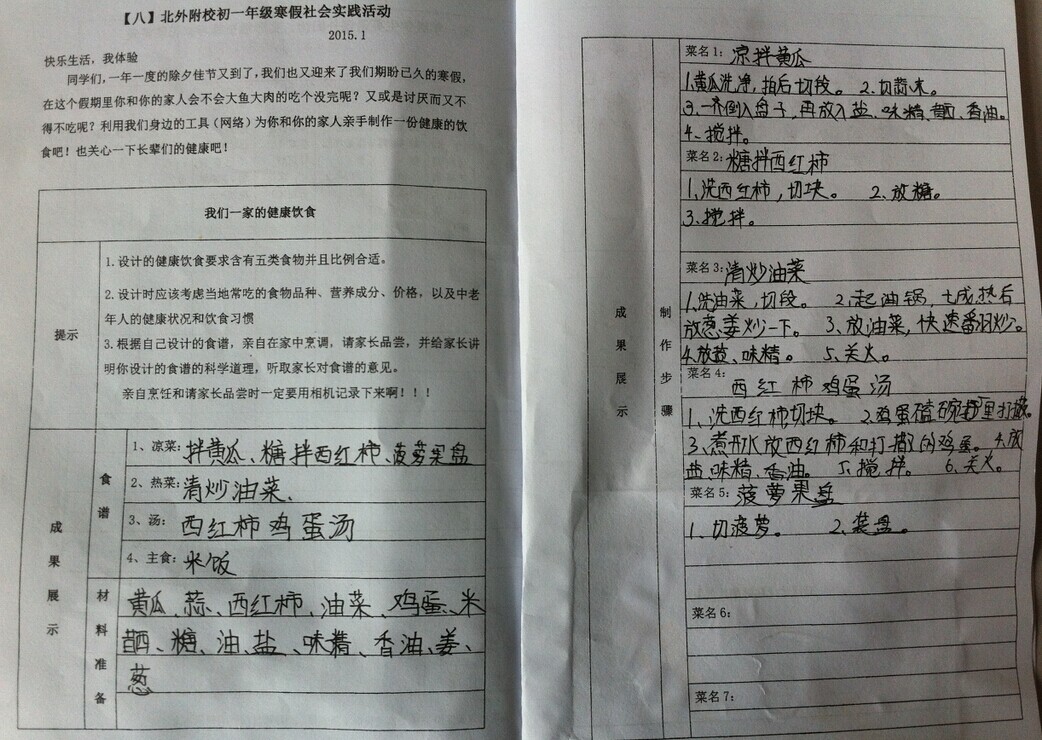 【八】北外附校初一年级寒假社会实践活动
2015.1
快乐生活，我体验
同学们，一年一度的除夕佳节又到了，我们也又迎来了我们期盼已久的寒假，
在这个假期里你和你的家人会不会大鱼大肉的吃个没完呢？又或是讨厌而又不
得不吃呢？利用我们身边的工具（网络）为你和你的家人亲手制作一份健康的饮
食吧！也关心一下长辈们的健康吧！
我们一家的健康饮食
提示
1.设计的健康饮食要求含有五类食物并且比例合适。
2.设计时应该考虑当地常吃的食物品种、营养成分、价格，以及中老
年人的健康状况和饮食习惯
3.根据自己设计的食谱，亲自在家中烹调，请家长品尝，并给家长讲
明你设计的食谱的科学道理，听取家长对食谱的意见。
亲自烹饪和请家长品尝时一定要用相机记录下来啊！！！
成果展示
食谱
1、凉菜：拌黄瓜、糖拌西红柿、菠萝果盘
2、热菜：清炒油菜、
3、汤：西红柿鸡蛋汤
4、主食：米饭
材料准备
黄瓜、蒜、西红柿、油菜、鸡蛋、米
醋、糖、油、盐、味精、香油、姜、
葱
成果展示
制作步骤
菜名1：凉拌黄瓜
1.黄瓜洗净，拍后切段。 2.切蒜末。
3.一齐倒入盘子，再放入盐、味精、醋、香油。
4、搅拌。
菜名2：糖拌西红柿
1、洗西红柿，切块。 2、放糖。
3.搅拌。
菜名3：清炒油菜
1、洗油菜，切段。 2、起油锅，七成热后
放葱姜炒一下。 3、放油菜，快速翻炒。
4.放盐、味精。 5、关火。
菜名4：西红柿鸡蛋汤
1、洗西红柿切块。 2.鸡蛋磕碗里打散。
3、煮开水放西红柿和打散的鸡蛋。4.放
盐、味精、香油。 5、搅拌。 6、关火。
菜名5：菠萝果盘
1、切菠萝。 2、装盘。
菜名6：
菜名7：